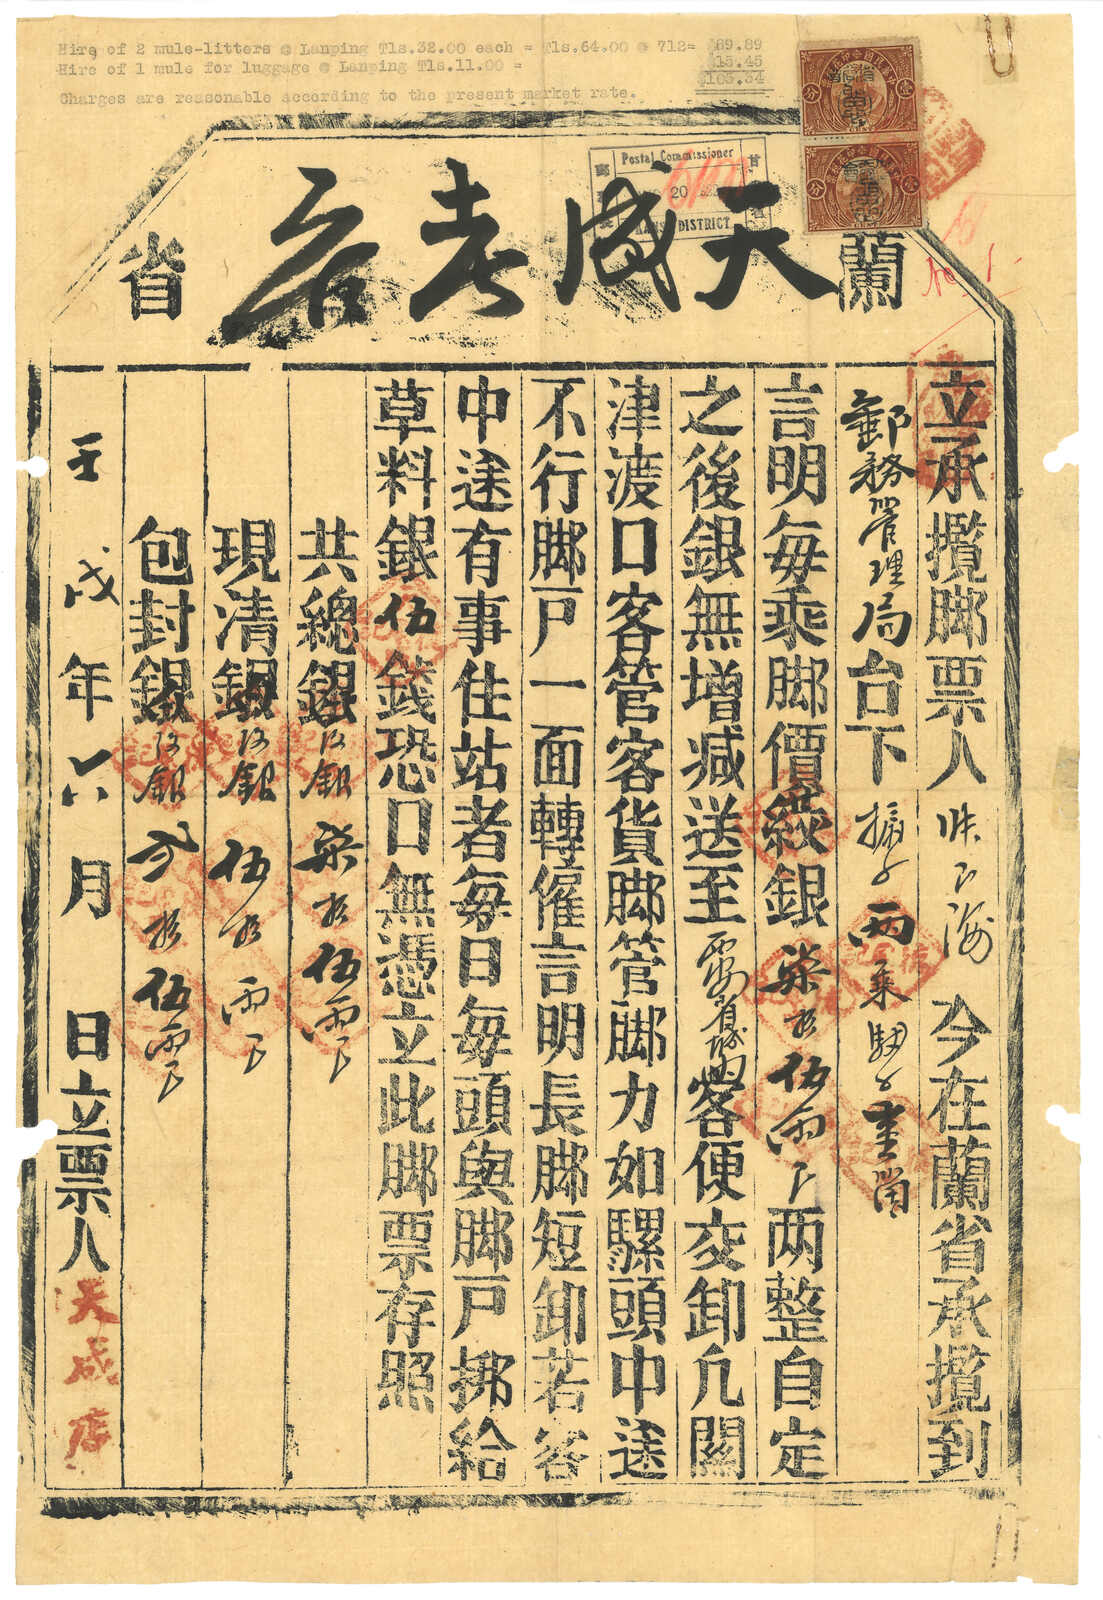 Hire of 2 mule-litters @ Lanping Tls.32.00 each = Tls.64.00 @ 712= $89.89
Hire of 1 mule for luggage @ Lanping Tls.11.00 = $15.45
$105.34
Charges are reasonable according to the present market rate.
Postal Commissioner
20
KANSU DISTRICT
蘭
天成老店
省
No 1
立承攬脚票人 今在蘭省承攬到
郵務管理局台下 兩乘
言明每乘脚價紋銀柒拾伍兩下两整自定
之後銀無增减送至西安省城内客便交卸凡關
津渡口客管客貨脚管脚力如騾頭中途
不行脚戸一面轉催言明長脚短卸若客
中途有事住站者每日每頭與脚戸挪給
草料銀伍錢恐口無憑立此脚票存照
共總銀 柒拾伍兩下
現清銀 伍拾兩下
包封銀 弍拾伍兩下
壬戌年六月 日立票人天成店